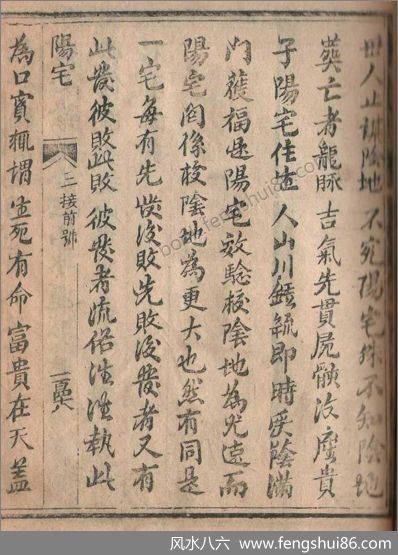 世人止求陰地不究陽宅殊不知陰地
葬亡者龍脉吉氣先貫屍骸沒廕貴
子陽宅住生人山川鍾毓即時受蔭滿
门獲福是陽宅效驗校陰地為尤速而
陽宅關係校陰地為更大也然有同是
一宅每有先發後敗先敗後發者又有
此發彼敗此敗彼發者流俗往往執此
陽宅
二接前號
為口實輒謂生死有命富貴在天蓋
风水八六 www.fengshui86.com